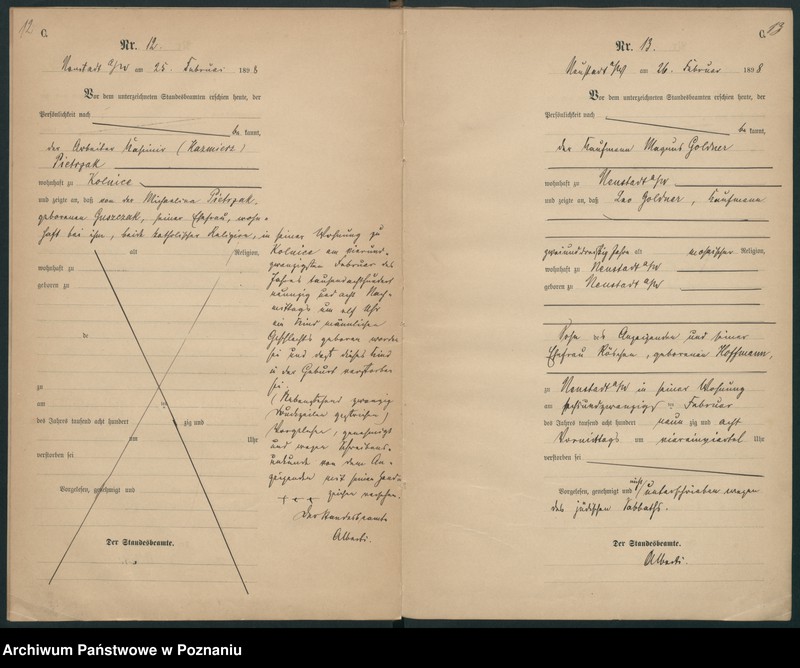 12
C.
Nr. 12.
Neustadt a/W am 25. Februar 1898
Vor dem unterzeichneten Standesbeamten erschien heute, der
Persönlichkeit nach
be kannt,
der Arbeiter Kasimir (Kazmierz)
Pietrzak
wohnhaft zu Kolnice
und zeigte an, daß von der Michaelina Pietrzak,
geborenen Guszczak, seiner Ehefrau, wohn-
haft bei ihm, beide katholischer Religion, in seiner Wohnung zu
Kolnice am vierund-
zwanzigsten Februar des
Jahres tausendachthundert
neunzig und acht Nach-
mittags um elf Uhr
ein Kind männlichen
Geschlechts geboren worden
sei und daß dieses Kind
in der Geburt verstorben
sei.
(Nebenstehend zwanzig
Druckzeilen gestrichen)
Vorgelesen, genehmigt
und wegen Schreibens-
unkunde von dem An-
zeigenden mit seinem Hand-
zeichen versehen.
+ + +
Der Standesbeamte
Alberti.
alt Religion,
wohnhaft zu
geboren zu
de
zu
am
des Jahres tausend acht hundert zig und
um Uhr
verstorben sei
Vorgelesen, genehmigt und
Der Standesbeamte.
C. 13
Nr. 13.
Neustadt a/W am 26. Februar 1898
Vor dem unterzeichneten Standesbeamten erschien heute, der
Persönlichkeit nach
be kannt,
der Kaufmann Magnus Goldner
wohnhaft zu Neustadt a/W
und zeigte an, daß Leo Goldner, Kaufmann
zweiunddreißig Jahre alt mosaischer Religion,
wohnhaft zu Neustadt a/W
geboren zu Neustadt a/W
Sohn des Anzeigenden und seiner
Ehefrau Röschen, geborenen Hoffmann,
zu Neustadt a/W in seiner Wohnung
am sechsundzwanzigsten Februar
des Jahres tausend acht hundert neun zig und acht
Vormittags um viereinviertel Uhr
verstorben sei
Vorgelesen, genehmigt und nicht unterschrieben wegen
des jüdischen Sabbaths.
Der Standesbeamte.
Alberti.
Archiwum Państwowe w Poznaniu